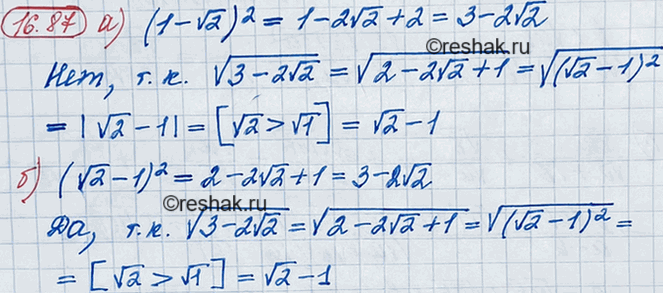 16.87 а) (1-√2)² = 1-2√2+2 = 3-2√2
©reshak.ru
Нет, т.к. √(3-2√2) = √(2-2√2+1) = √((√2-1)²)
= |√2-1| = [√2>√1] = √2-1
б) (√2-1)² = 2-2√2+1 = 3-2√2
©reshak.ru
Да, т.к. √(3-2√2) = √(2-2√2+1) = √((√2-1)²) =
= [√2>√1] = √2-1